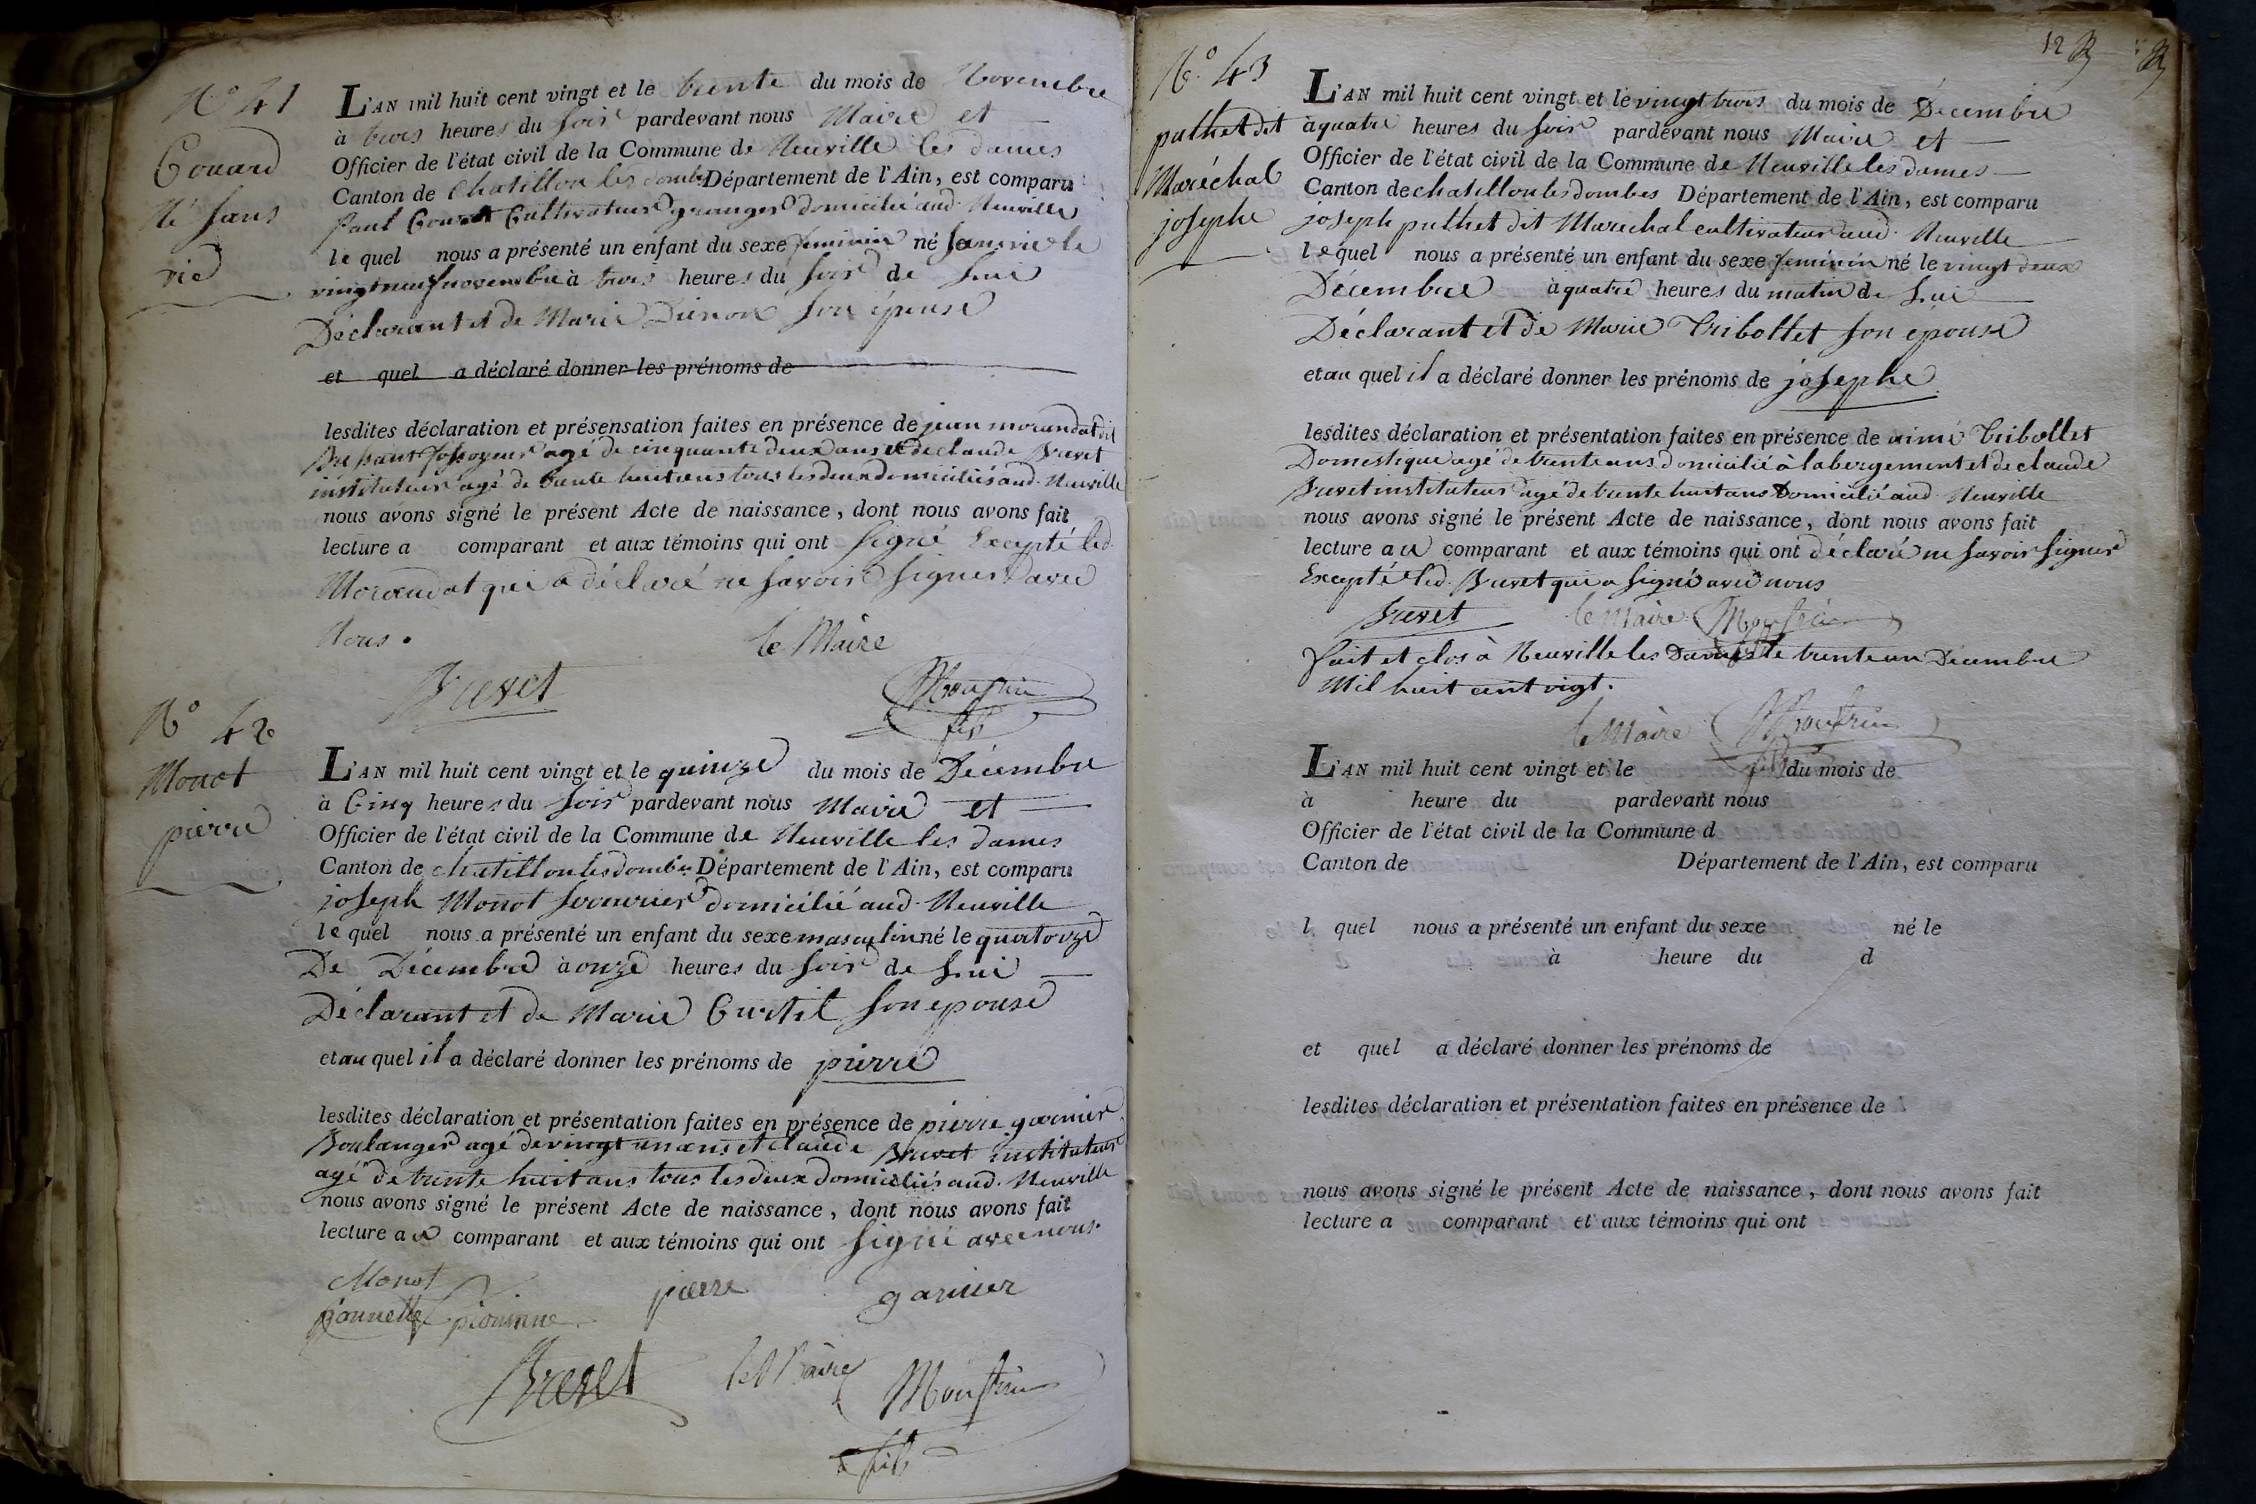 N° 41
Couard
Né sans
vie
L'AN mil huit cent vingt et le trente du mois de Novembre
à trois heures du soir pardevant nous Maire et
Officier de l'état civil de la Commune de Neuville les dames
Canton de Chatillon les dombes Département de l'Ain, est comparu
Paul Couard Cultivateur granger domicilié aud. Neuville
le quel nous a présenté un enfant du sexe feminin né sans vie le
vingt neuf novembre à trois heures du soir de lui
Déclarant et de Marie son épouse
et quel a déclaré donner les prénoms de
lesdites déclaration et présensation faites en présence de jean morandat dit
fossoyeur agé de cinquante deux ans et de claude Buvet
instituteur agé de trente huit ans tous les deux domiciliés aud. Neuville
nous avons signé le présent Acte de naissance, dont nous avons fait
lecture a comparant et aux témoins qui ont signé Excepté led.
Morandat qui a déclaré ne savoir signer avec
Nous.
le Maire
Buvet
fils
N° 42
Monot
pierre
L'AN mil huit cent vingt et le quinze du mois de Décembre
à Cinq heures du soir pardevant nous Maire et
Officier de l'état civil de la Commune de Neuville les dames
Canton de chatillon les dombes Département de l'Ain, est comparu
joseph Monot domicilié aud. Neuville
le quel nous a présenté un enfant du sexe masculin né le quatorze
De Décembre à onze heures du soir de lui
Déclarant et de Marie Curtil son epouse
et au quel il a déclaré donner les prénoms de pierre
lesdites déclaration et présentation faites en présence de pierre garnier
Boulanger agé de vingt un ans et claude Buvet instituteur
agé de trente huit ans tous les deux domiciliés aud. Neuville
nous avons signé le présent Acte de naissance, dont nous avons fait
lecture au comparant et aux témoins qui ont signé avec nous.
Monot
pierre garnier
Buvet le Maire
fils
12
N° 43
puthet dit
Maréchal
josephe
L'AN mil huit cent vingt et le vingt trois du mois de Décembre
à quatre heures du soir pardevant nous Maire et
Officier de l'état civil de la Commune de Neuville les dames
Canton de chatillon les dombes Département de l'Ain, est comparu
joseph puthet dit Marechal cultivateur aud. Neuville
le quel nous a présenté un enfant du sexe feminin né le vingt deux
Décembre à quatre heures du matin de lui
Déclarant et de Marie Tribollet son epouse
et au quel il a déclaré donner les prénoms de josephe
lesdites déclaration et présentation faites en présence de aimé Tribollet
Domestique agé de trente ans domicilié à labergement et de claude
Buvet instituteur agé de trente huit ans Domicilié aud. Neuville
nous avons signé le présent Acte de naissance, dont nous avons fait
lecture au comparant et aux témoins qui ont déclaré ne savoir signer
Excepté led. Buvet qui a signé avec nous
Buvet le Maire
fait et clos à Neuville les Dames le trente un Décembre
Mil huit cent vigt.
le Maire
fils
L'AN mil huit cent vingt et le du mois de
à heure du pardevant nous
Officier de l'état civil de la Commune d
Canton de Département de l'Ain, est comparu
l quel nous a présenté un enfant du sexe né le
à heure du d
et quel a déclaré donner les prénoms de
lesdites déclaration et présentation faites en présence de
nous avons signé le présent Acte de naissance, dont nous avons fait
lecture a comparant et aux témoins qui ont